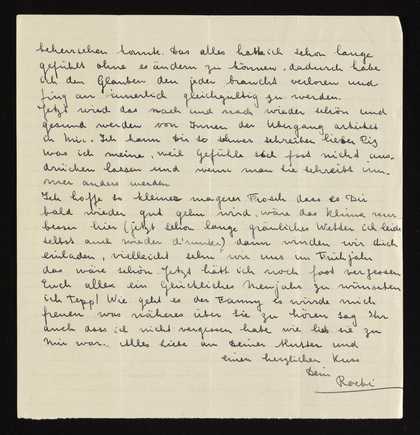 beherrschen konnte. Das alles hatte ich schon lange
gefühlt ohne es ändern zu können, dadurch habe
ich den Glauben den jeder braucht verloren und
fing an innerlich gleichgültig zu werden.
Jetzt wird das nach und nach wieder schön und
gesund werden von Innen der Übergang arbeitet
in mir. Ich kann Dir so schwer schreiben liebe
was ich meine, weil Gefühle sich fast nicht aus-
drücken lassen und wenn man sie schreibt im-
mer anders werden
Ich hoffe so kleiner magerer Frosch dass es Dir
bald wieder gut gehn wird, wäre das Klima nur
besser hier (jetzt schon lange gräuliches Wetter ich leide
selbst auch wieder drunter) dann würden wir Dich
einladen, vielleicht sehn wir uns im Frühjahr
das wäre schön. Jetzt hätt ich noch fast vergessen
Euch allen ein Glückliches Neujahr zu wünschen
ich Tepp! Wie geht es der Fanny es würde mich
freuen was näheres über sie zu hören sag Ihr
auch dass ich nicht vergessen habe wie lieb sie zu
mir war. Alles liebe an Deine Mutter und
einen herzlichen Kuss
Dein